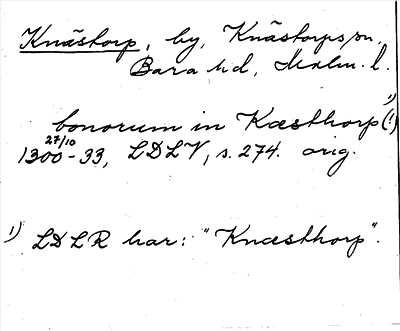 Knästorp, by, Knästorps sn,
Bara hd, Malm. l.
bonorum in Kæsthorp (!) 1)
27/10
1300-33, LDLV, s. 274. orig.
1) LDLR har: "Knæsthorp".